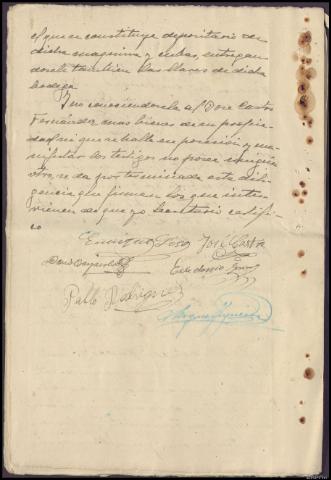 el que se constituye depositario de
dicha maquina y cubas, entregan
dosele tambien las llaves de dicha
bodega.
Y no conociendosele al Don Castor
Fernandez mas bienes de su propie
dad ni que se halle en posesión y ma
nifestar los testigos no posee ningun
otro, se da por terminada esta dili
gencia que firman los que inter
vienen de que yo Secretario certifi
co
Enrique José Castor
Pablo Rodriguez